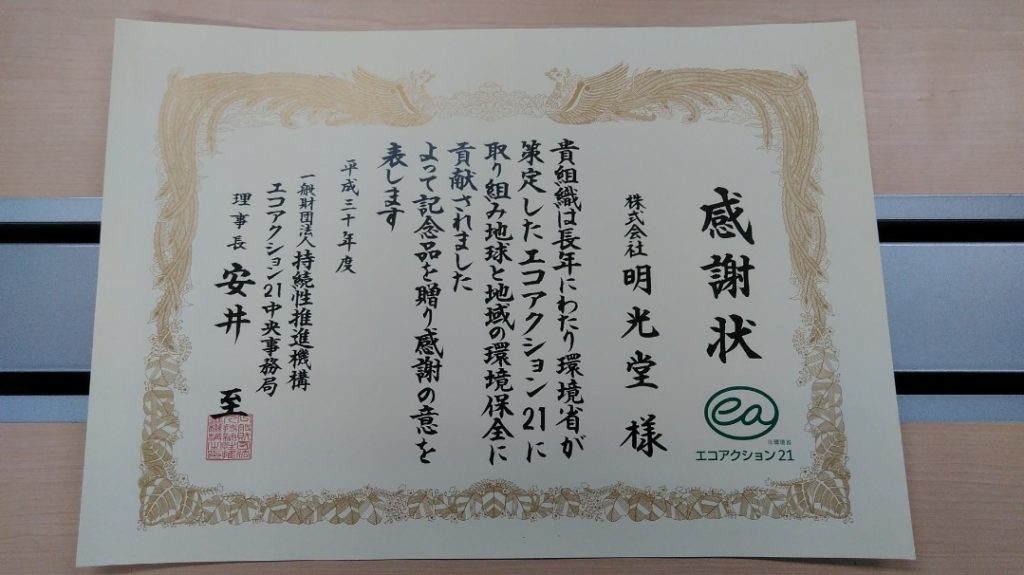 感謝状
ea
エコアクション21
株式会社 明光堂 様
貴組織は長年にわたり環境省が
策定したエコアクション21に
取り組み地球と地域の環境保全に
貢献されました
よって記念品を贈り感謝の意を
表します
平成三十年度
一般財団法人 持続性推進機構
エコアクション21中央事務局
理事長 安井 至